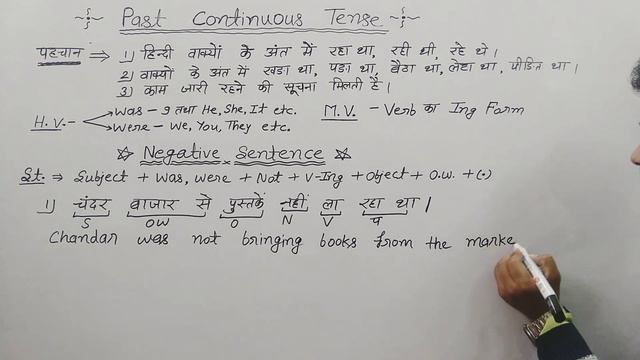 Past Continuous Tense
पहचान ⇒ 1) हिन्दी वाक्यों के अंत में रहा था, रही थी, रहे थे।
2) वाक्यों के अंत में खड़ा था, पड़ा था, बैठा था, लेटा था, पीड़ित था।
3) काम जारी रहने की सूचना मिलती है।
H.V. - Was - I तथा He, She, It etc. M.V. - Verb का Ing Form
Were - We, You, They etc.
☆ Negative Sentence ☆
St. ⇒ Subject + Was, Were + Not + V-Ing + Object + O.W. + (.)
1) चंदर बाजार से पुस्तकें नहीं ला रहा था।
S OW O N V प
Chandar was not bringing books from the marke